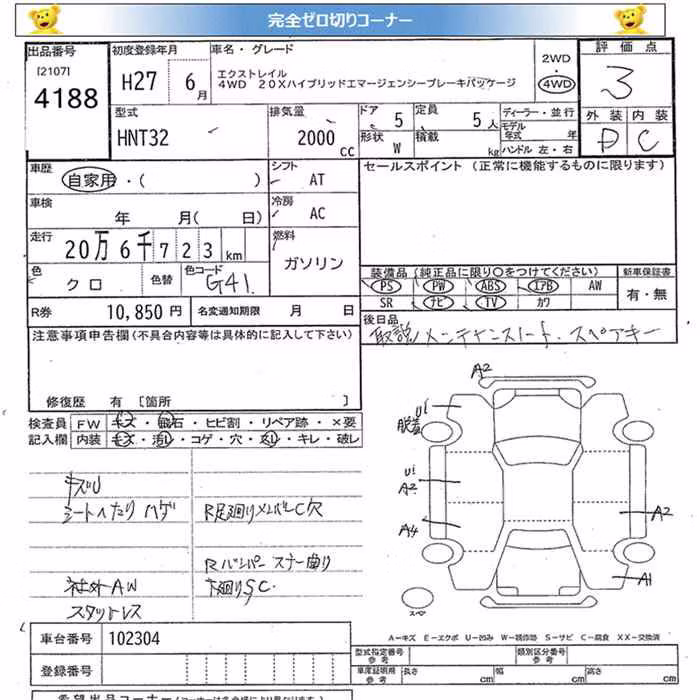 完全ゼロ切りコーナー
出品番号
[2107]
4188
初度登録年月
H27 6月
車名・グレード
エクストレイル
4WD 20Xハイブリッドエマージェンシーブレーキパッケージ
2WD
・
4WD
評価点
3
外装 内装
D C
型式
HNT32
排気量
2000 CC
ドア 5
定員 5人
形状 W
積載 kg
ディーラー・並行
モデル年式 年
ハンドル 左・右
車歴
自家用・( )
シフト
AT
セールスポイント (正常に機能するものに限ります)
車検
年 月( 日)
冷房
AC
走行
20万6千723km
燃料
ガソリン
色
クロ
色替
色コード
G41
装備品(純正品に限り○をつけてください)
新車保証書
PS PW ABS エアB AW
SR ナビ TV カワ
有・無
R券 10,850円
名変通知期限 月 日
後日品
取説、メンテナンスノート、スペアキー
注意事項申告欄(不具合内容等は具体的に記入して下さい)
修復歴 有 [箇所 ]
検査員
記入欄
FW キズ・飛石・ヒビ割・リペア跡・×要
内装 キズ・汚レ・コゲ・穴・スレ・キレ・破レ
キズU
シートヘたり ハゲ
R足廻りメンバーC穴
Rバンパー ステー曲り
社外AW
下廻りSC.
スタットレス
A2
U1
脱着
U1
A2
A4
A2
A1
スペア
A-キズ E-エクボ U-凹み W-補修跡 S-サビ C-腐食 XX-交換済
車台番号 102304
登録番号
型式指定番号
参考
類別区分番号
参考
車庫証明用
参考
長さ cm
幅 cm
高さ cm
希望出品コーナー